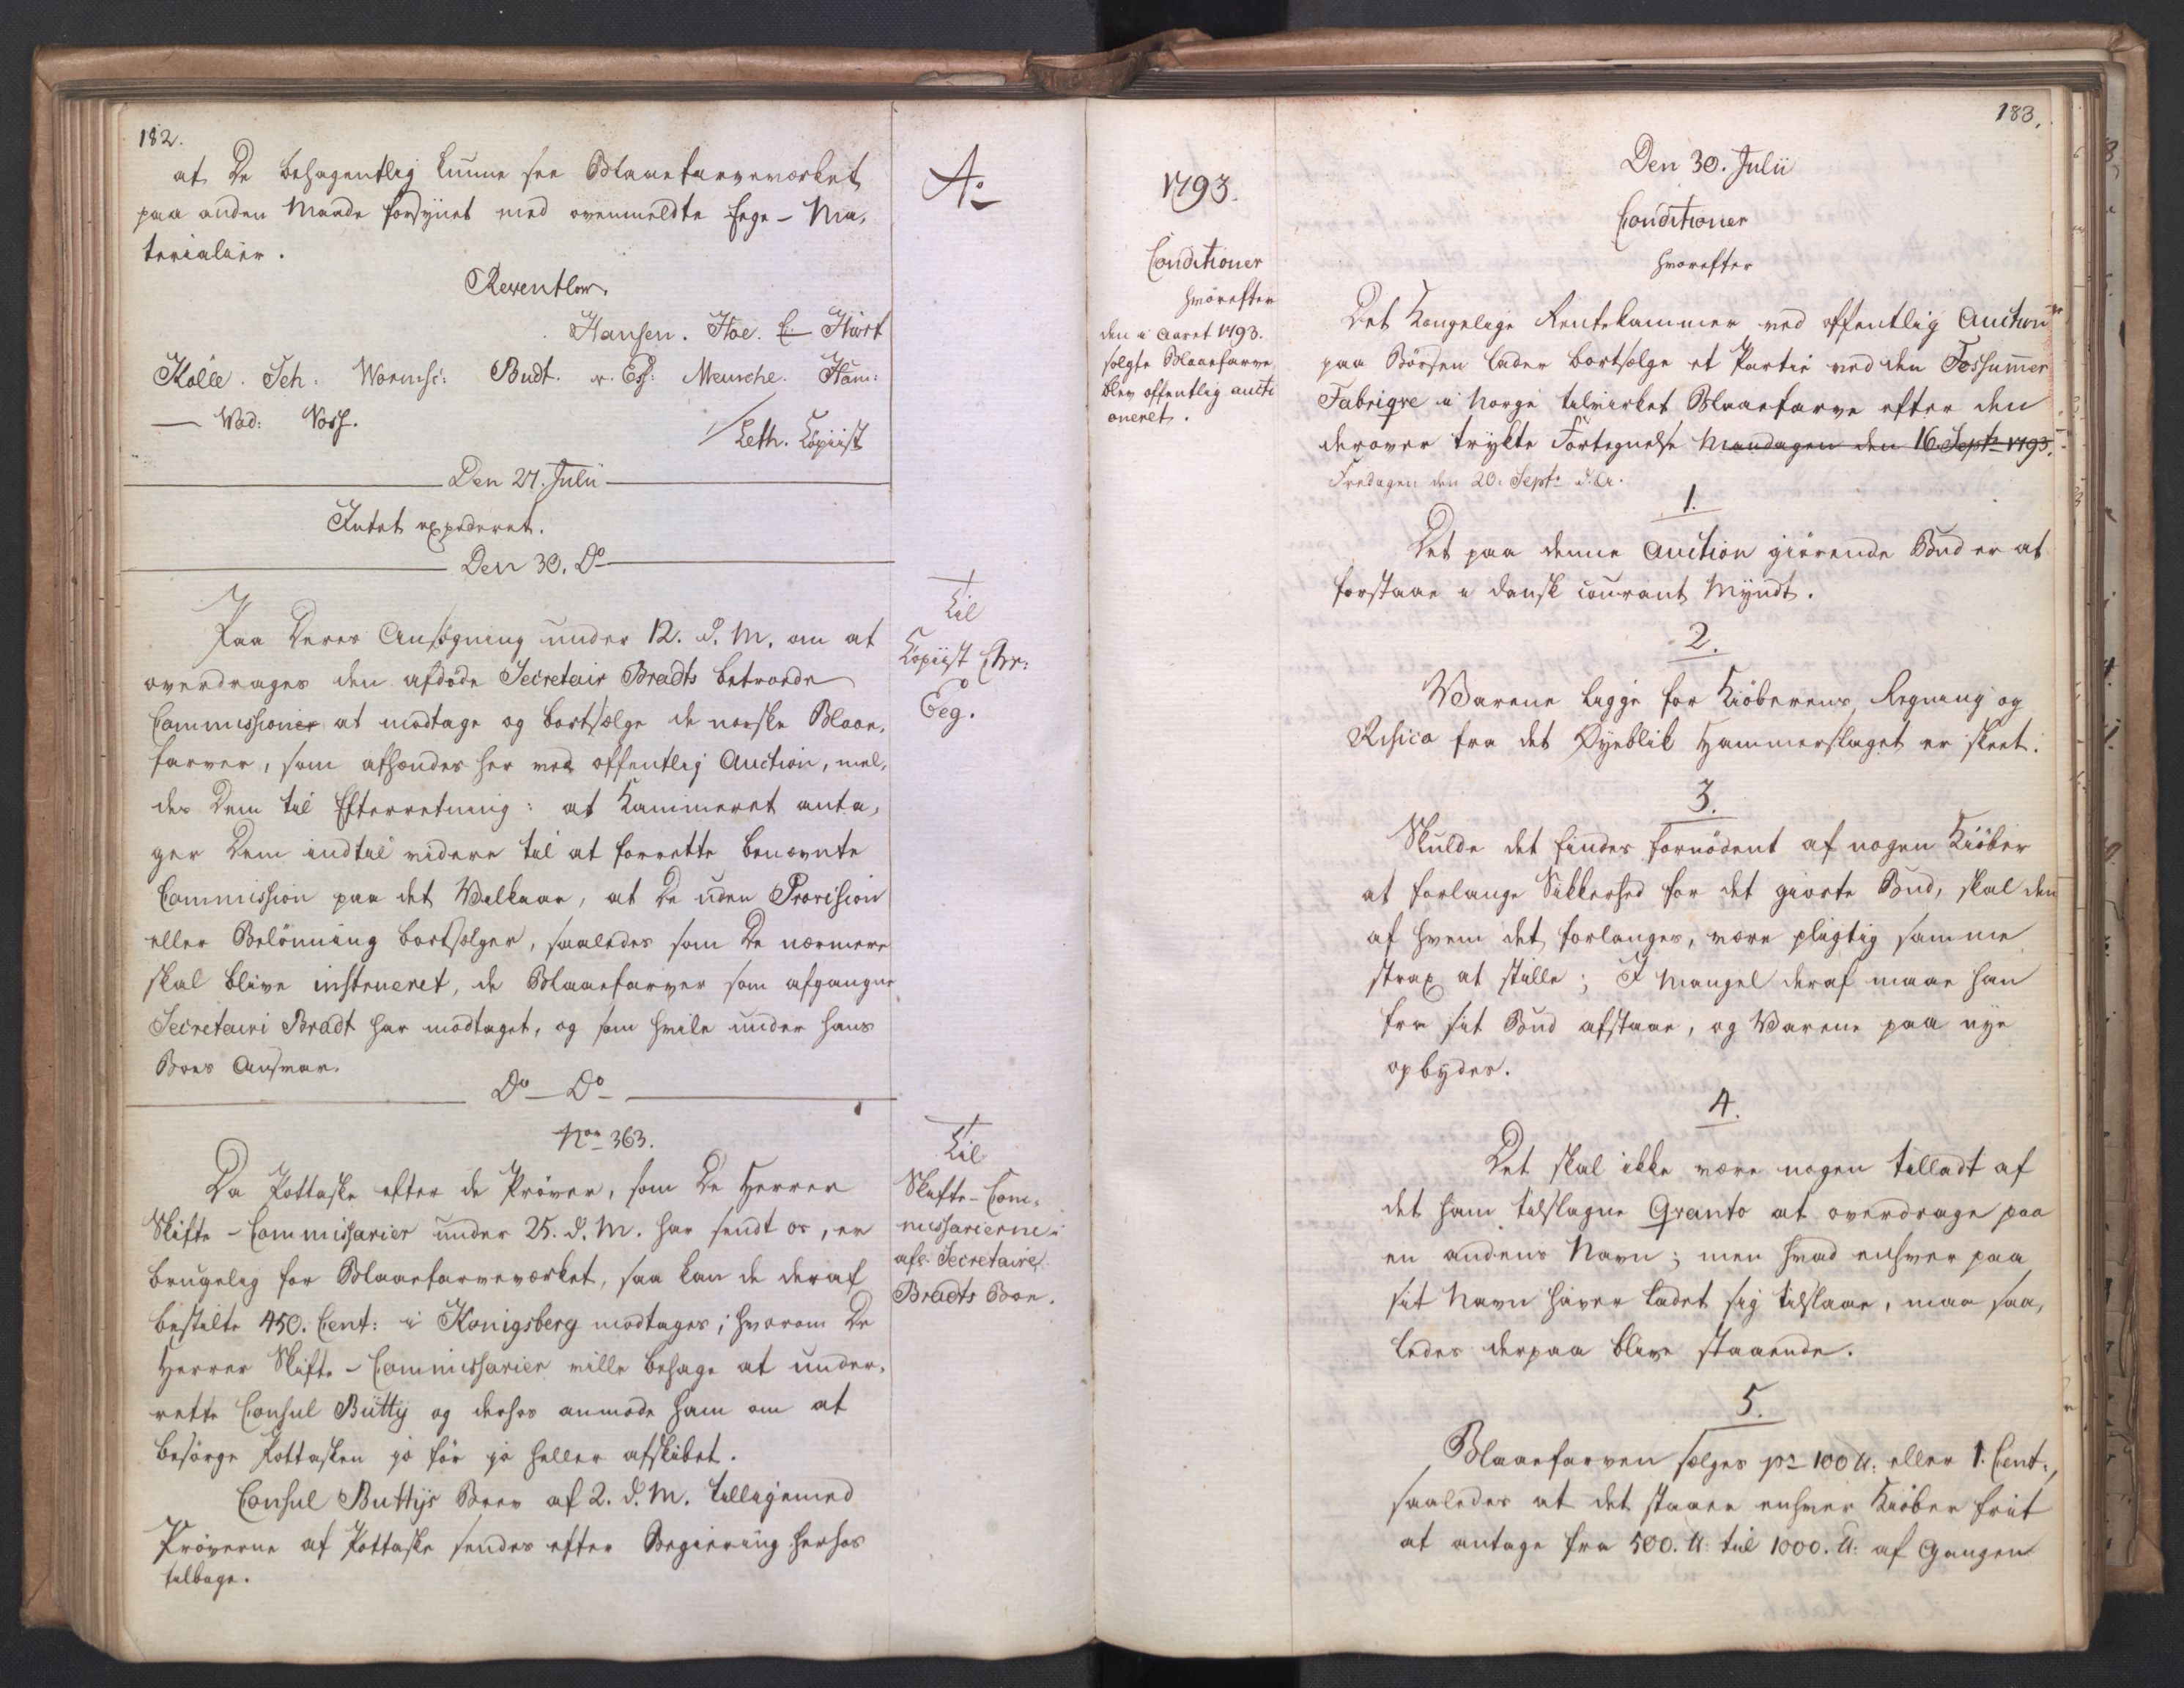 182.
at De behagentlig kunne see Blaaefarveværket
paa anden Maade forsynet med ovenmeldte Ege-Ma,
terialier.
Reventlow.
Hansen. Hoe. C. Hiort
Kølle. Sch: Wormsk: Budt. v. Esf: Meusche. Ham:
Wad: Voss.
/Leth. Copiist
Den 27. Julii
Intet expederet.
Den 30. Do
Paa Deres Ansøgning under 12. d. M. om at
overdrages den afdøde Secretair Bradts betroede
Commissioner at modtage og bortsælge de norske Blaae,
farver, som afhændes her ved offentlig Auction, mel,
des Dem til Efterretning: at Kammeret anta,
ger Dem indtil videre til at forrette benævnte
Commission paa det Vilkaar, at De uden Provision
eller Belönning bortsælger, saaledes som De nærmere
skal blive instrueret, de Blaaefarver som afgangne
Secretairi Bradt har modtaget, og som hvile under hans
Boes Ansvar.
Do Do
Non 363.
Da Pottaske efter de Prøver, som De Herrer
Skifte-Commissarier under 25. d. M. har sendt os, er
brugelig for Blaaefarveværket, saa kan de deraf
bestilte 450. Cent: i Konigsberg modtages; hvorom De
Herrer Skifte-Commissarier ville behage at under,
rette Consul Büttÿ og derhos anmode ham om at
besørge Pottasken jo før jo heller afskibet.
Consul Buttÿs Brev af 2. d. M. tilligemed
Prøverne af Pottaske sendes efter Begiering herhos
tilbage.
Ao
Til
Copiist Chr:
Eeg.
Til
Skifte-Com,
missarierne i
afg. Secretaire
Bradts Boe.
1793.
Conditioner
hvorefter
den i Aaret 1793.
solgte Blaaefarve
blev offentlig aucti
oneret.
183.
Den 30. Julii
Conditioner
hvorefter
Det Kongelige Rentekammer ved offentlig Auction
paa Børsen lader bortsælge et Partie ved den Fossumer
Fabriqve i Norge tilvirket Blaaefarve efter den
derover trykte Fortegnelse Mandagen den 16 Sept. 1793.
Fredagen den 20. Septr. d. A.
1.
Det paa denne Auction giørende Bud er at
forstaae i dansk courant Myndt.
2.
Varene ligge for Kiøberens Regning og
Risico fra det Øyeblik Hammerslaget er skeet.
3.
Skulde det findes fornödent af nogen Kiøber
at forlange Sikkerhed for det giorte Bud, skal den
af hvem det forlanges, være pligtig samme
strax at stille; I Mangel deraf maae han
fra sit Bud afstaae, og Varene paa nye
opbydes.
4.
Det skal ikke være nogen tilladt af
det ham tilslagne Qvanto at overdrage paa
en andens Navn; men hvad enhver paa
sit Navn haver ladet sig tilslaae, maa saa,
ledes derpaa blive staaende.
5.
Blaaefarven sælges pr 100 ℔: eller 1. Cent:,
saaledes at det staaer enhver Kiøber frit
at antage fra 500. ℔: til 1000. ℔: af Gangen